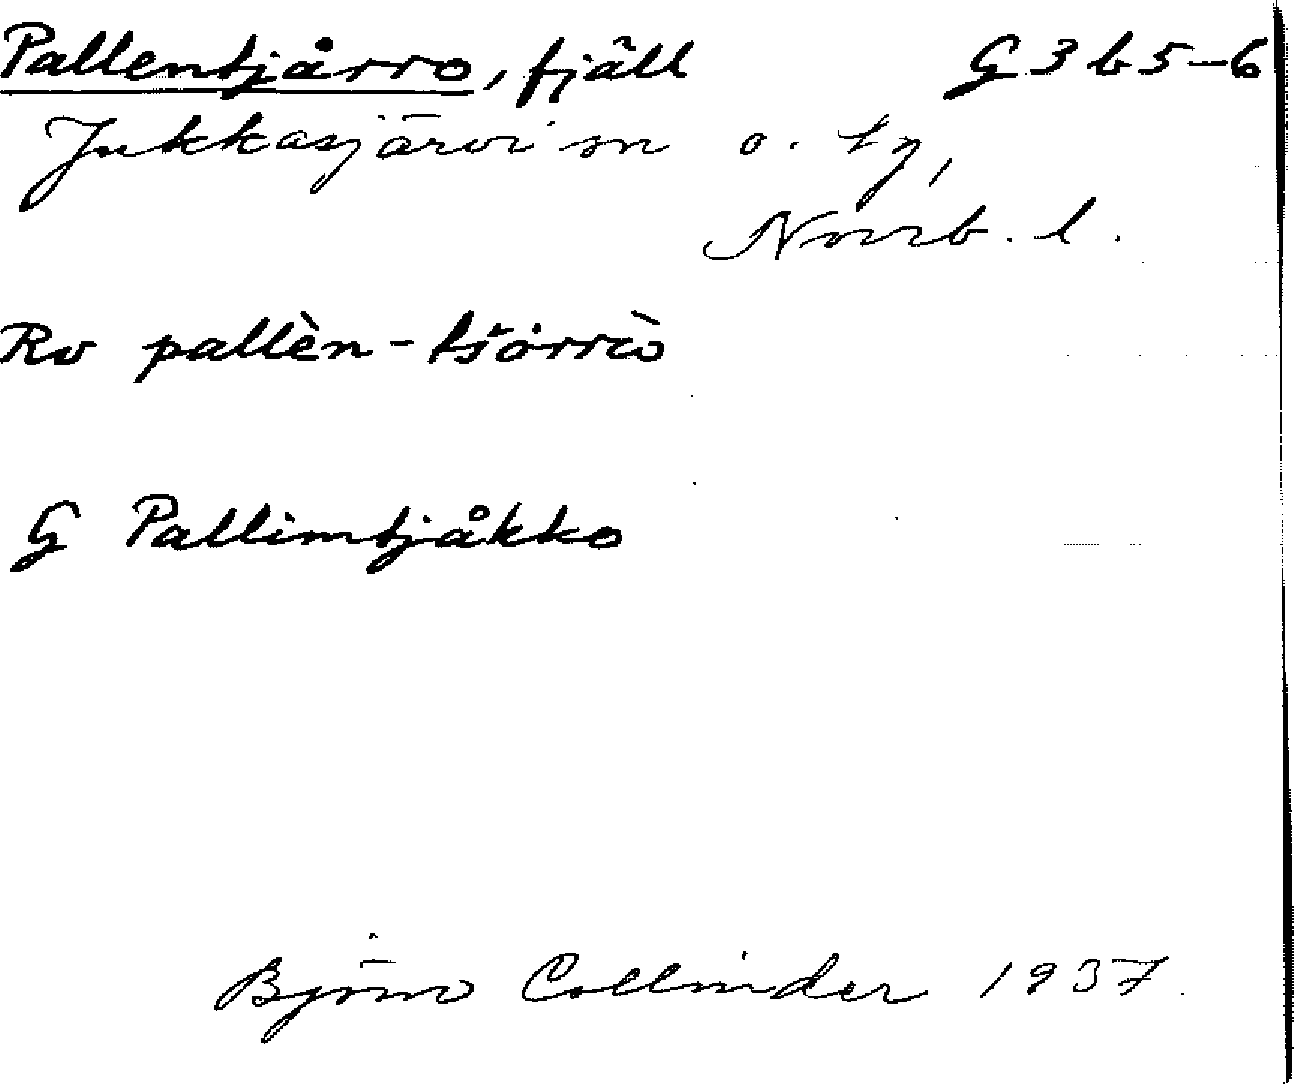 Pallentjårro, fjäll G 3 b 5-6
Jukkasjärvi sn o. tg,
Norrb. l.
Rv pallèn-tšȯrrò
G Pallimtjåkko
Björn Collinder 1937